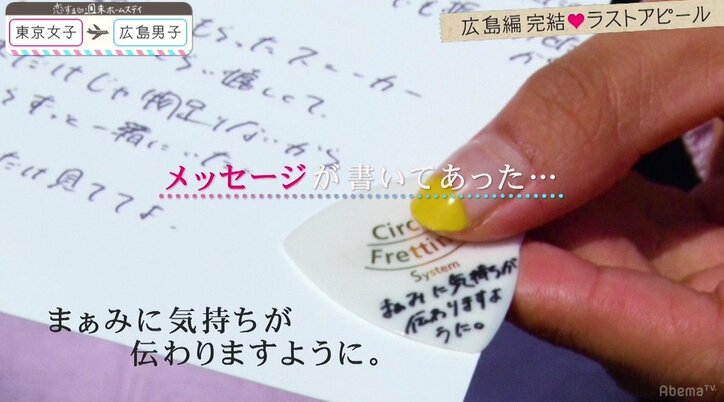 恋する♥週末ホームステイ
東京女子
広島男子
広島編 完結♥ラストアピール
もらったスニーカー
嬉しくて、
だけじゃ物足りないから
ずっと一緒にいた
だけ見ててよ。
メッセージが書いてあった…
Circ
Fretting
System
まぁみに気持ちが
伝わりますよ
うに。
まぁみに気持ちが
伝わりますように。
AbemaTV.